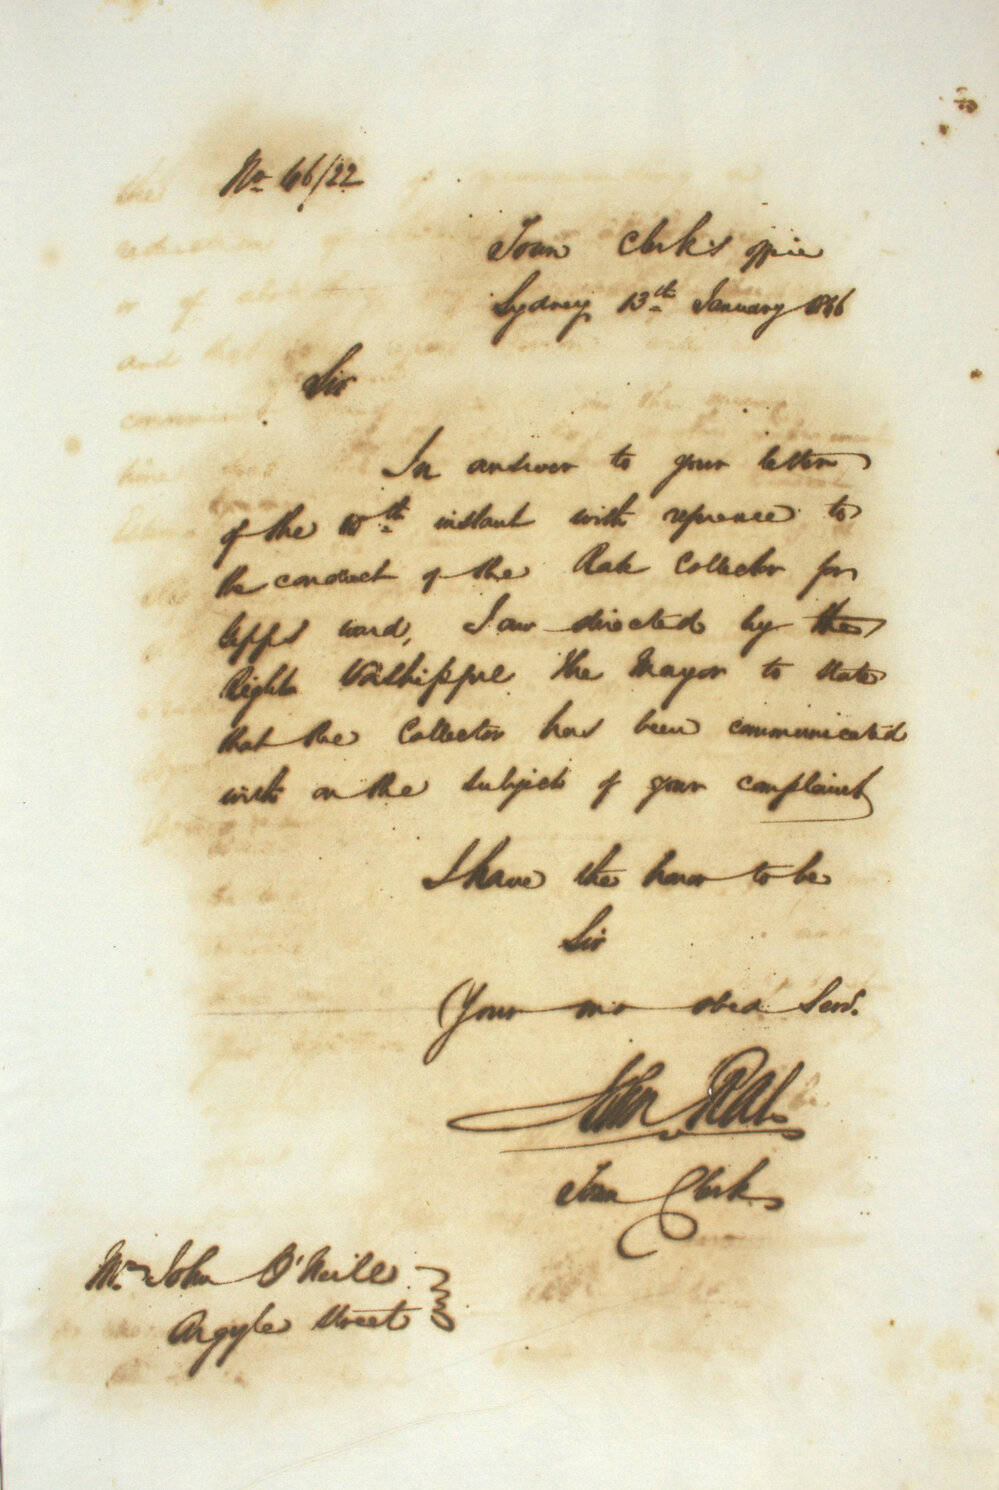 No 66/22
Town Clerk's office
Sydney 13th January 1866
Sir
In answer to your letter
of the 10th instant with reference to
the conduct of the Rate Collector for
Gipps ward, I am directed by the
Right Worshipful the Mayor to state
that the Collector has been communicated
with on the subject of your complaint
I have the honor to be
Sir
Your mo obed Serv.
John
Town Clerk
Mr. John O'Neill
Argyle Street